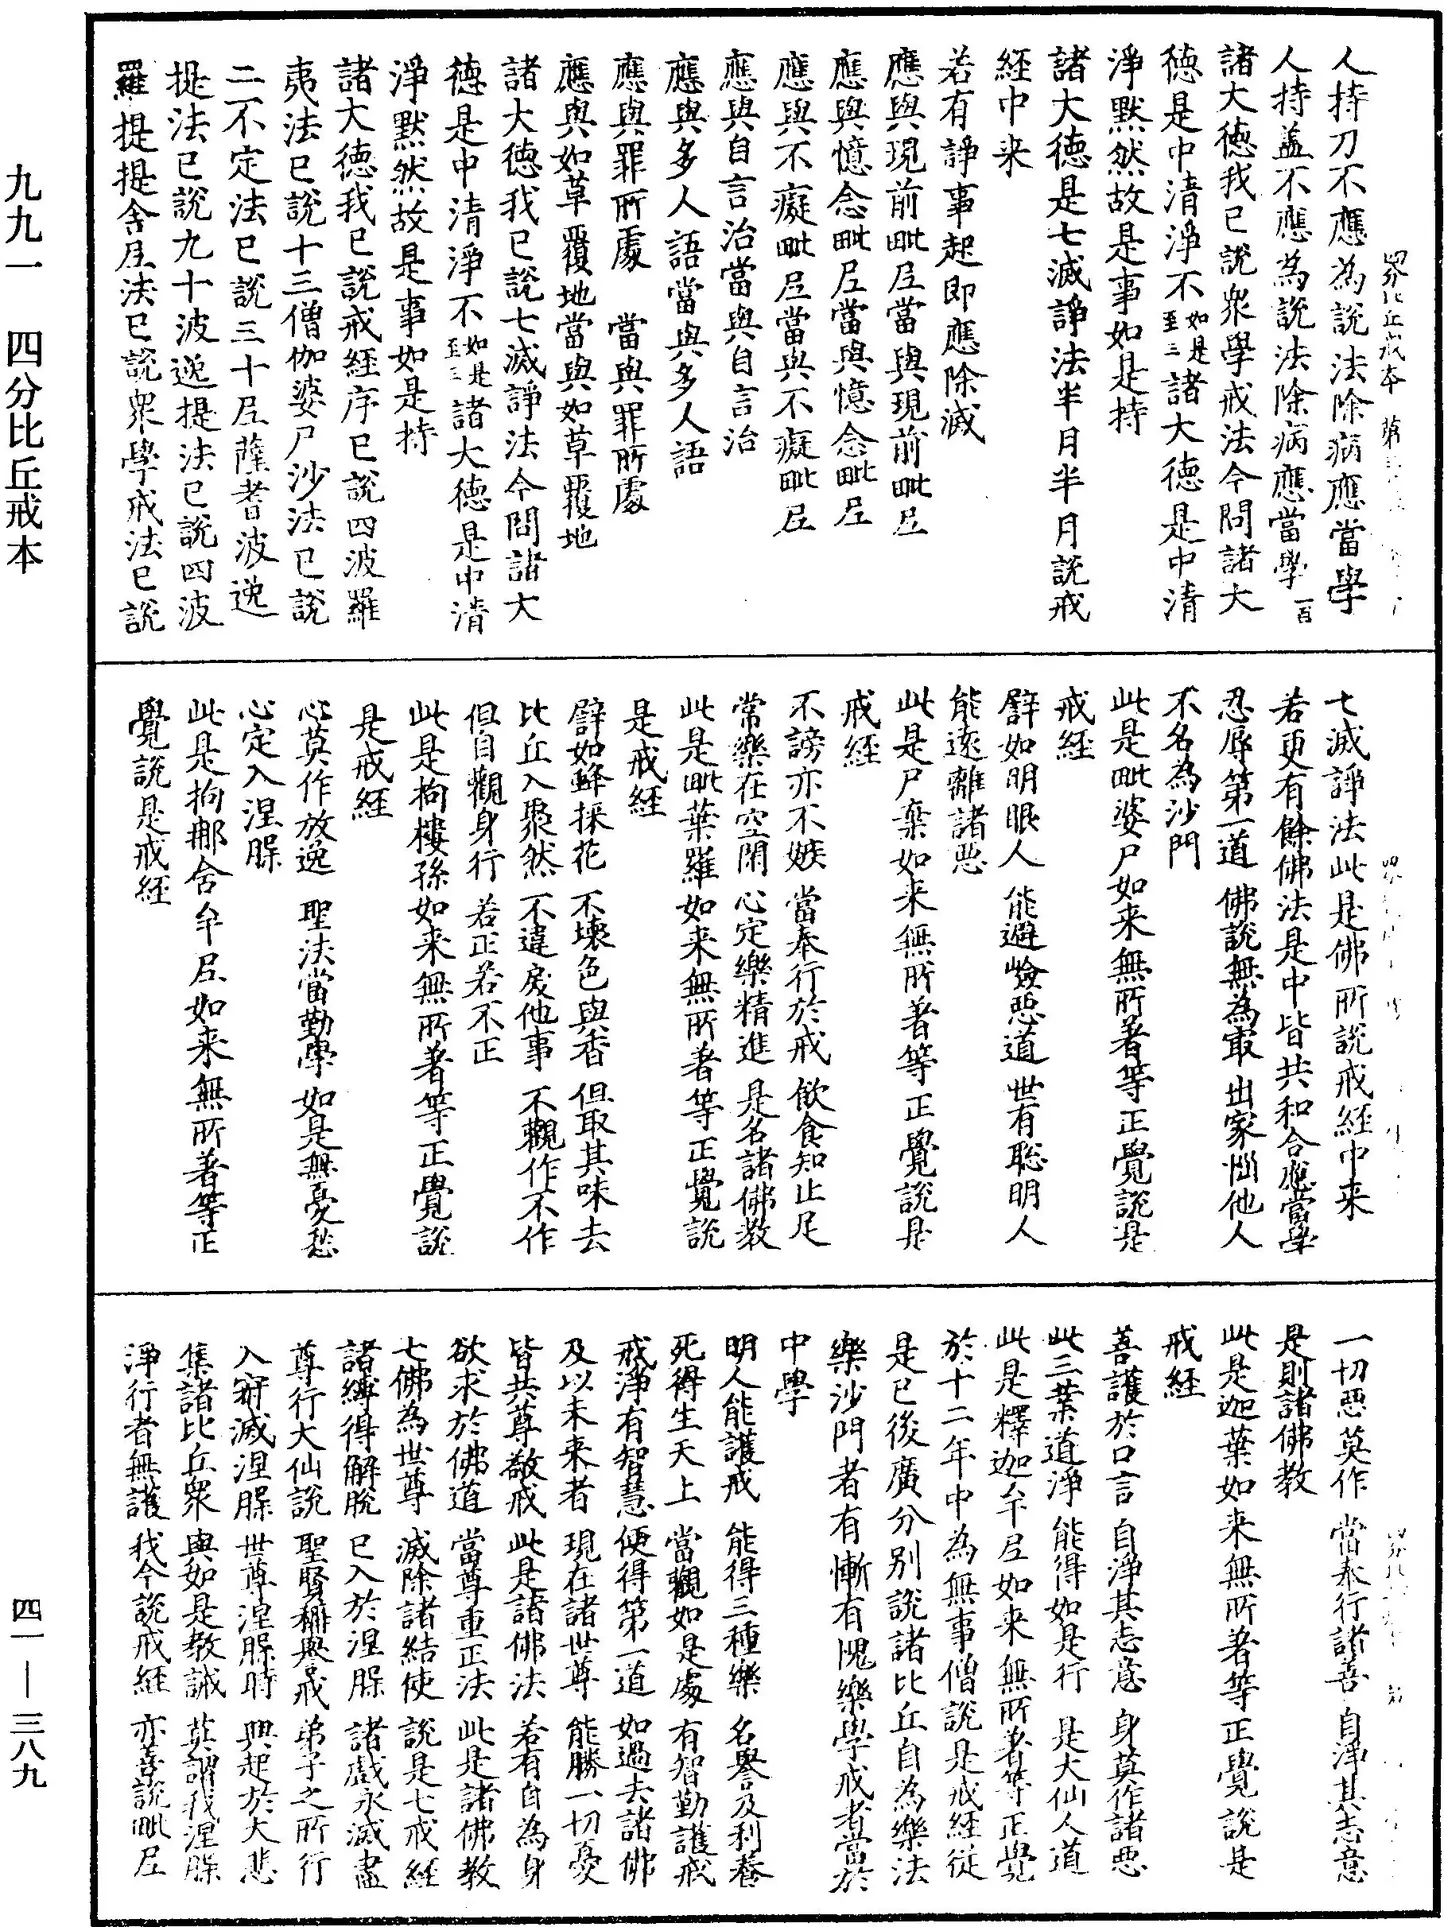 人持刀不應為說法除病應當學
人持蓋不應為說法除病應當學一百
諸大德我已說眾學戒法今問諸大
德是中清淨不如是至三諸大德是中清
淨默然故是事如是持
諸大德是七滅諍法半月半月說戒
經中来
若有諍事起即應除滅
應與現前毗尼當與現前毗尼
應與憶念毗尼當與憶念毗尼
應與不癡毗尼當與不癡毗尼
應與自言治當與自言治
應與多人語當與多人語
應與罪所處 當與罪所處
應與如草覆地當與如草覆地
諸大德我已說七滅諍法今問諸大
德是中清淨不如是至三諸大德是中清
淨默然故是事如是持
諸大德我已說戒經序已說四波羅
夷法已說十三僧伽婆尸沙法已說
二不定法已說三十尼薩耆波逸
提法已說九十波逸提法已說四波
羅提提舍尼法已說眾學戒法已說
七滅諍法此是佛所說戒經中来
若更有餘佛法是中皆共和合應當學
忍辱第一道 佛說無為最 出家惱他人
不名為沙門
此是毗婆尸如来無所著等正覺說是
戒經
譬如明眼人 能避嶮惡道 世有聡明人
能遠離諸惡
此是尸棄如来無所著等正覺說是
戒經
不謗亦不嫉 當奉行於戒 飲食知止足
常樂在空閑 心定樂精進 是名諸佛教
此是毗葉羅如来無所著等正覺說
是戒經
譬如蜂採花 不壞色與香 但取其味去
比丘入聚然 不違戾他事 不觀作不作
但自觀身行 若正若不正
此是拘樓孫如来無所著等正覺說
是戒經
心莫作放逸 聖法當勤學 如是無憂愁
心定入涅槃
此是拘那含牟尼如来無所著等正
覺說是戒經
一切惡莫作 當奉行諸善 自淨其志意
是則諸佛教
此是迦葉如来無所著等正覺說是
戒經
善護於口言 自淨其志意 身莫作諸惡
此三業道淨 能得如是行 是大仙人道
此是釋迦牟尼如来無所著等正覺
於十二年中為無事僧說是戒經從
是已後廣分別說諸比丘自為樂法
樂沙門者有慚有愧樂學戒者當於
中學
明人能護戒 能得三種樂 名譽及利養
死得生天上 當觀如是處 有智勤護戒
戒淨有智慧 便得第一道 如過去諸佛
及以未来者 現在諸世尊 能勝一切憂
皆共尊敬戒 此是諸佛法 若有自為身
欲求於佛道 當尊重正法 此是諸佛教
七佛為世尊 滅除諸結使 說是七戒經
諸縛得解脫 已入於涅槃 諸戲永滅盡
尊行大仙說 聖賢稱與戒 弟子之所行
入寂滅涅槃 世尊涅槃時 興起於大悲
集諸比丘眾 與如是教誡 莫謂我涅槃
淨行者無護 我今說戒經 亦善說毗尼
九九一 四分比丘戒本
四一—三八九